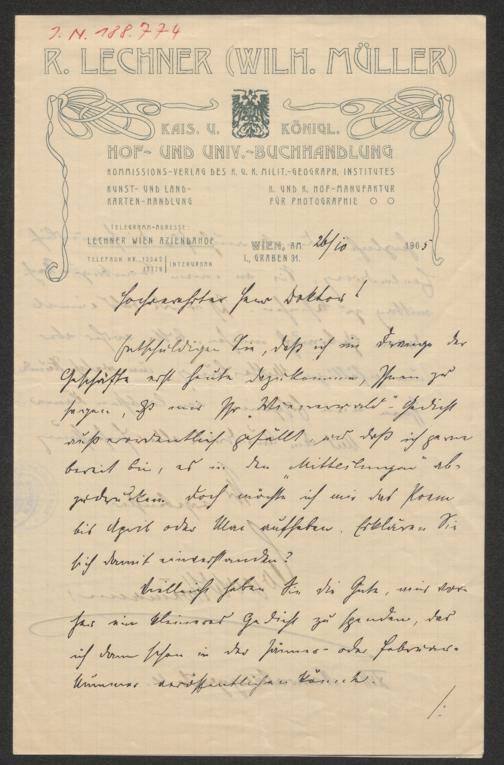 J. N. 188.774
R. LECHNER (WILH. MÜLLER)
KAIS. U. KÖNIGL.
HOF- UND UNIV.-BUCHHANDLUNG
KOMMISSIONS-VERLAG DES K. U. K. MILIT.-GEOGRAPH. INSTITUTES
KUNST- UND LAND-
KARTEN-HANDLUNG
K. UND K. HOF-MANUFAKTUR
FÜR PHOTOGRAPHIE
TELEGRAMM-ADRESSE:
LECHNER WIEN AZIENDAHOF
TELEPHON NR. INTERURBAN
WIEN, AM 26/10 1905
I., GRABEN 31.
Hochverehrter Herr Doktor!
Entschuldigen Sie, daß ich im Drange der
Geschäfte erst heute dazukomme, Ihnen zu
sagen, daß mir Ihr „Wienerwald" Gedicht
außerordentlich gefällt und daß ich gerne
bereit bin, es in den „Mitteilungen" ab-
zudrucken. Doch möchte ich mir das Poem
bis April oder Mai aufheben. Erklären Sie
sich damit einverstanden?
Vielleicht haben Sie die Güte, mir vor-
her ein kleineres Gedicht zu spenden, das
ich dann schon in der Jänner- oder Februar-
Nummer veröffentlichen könnte.
/: